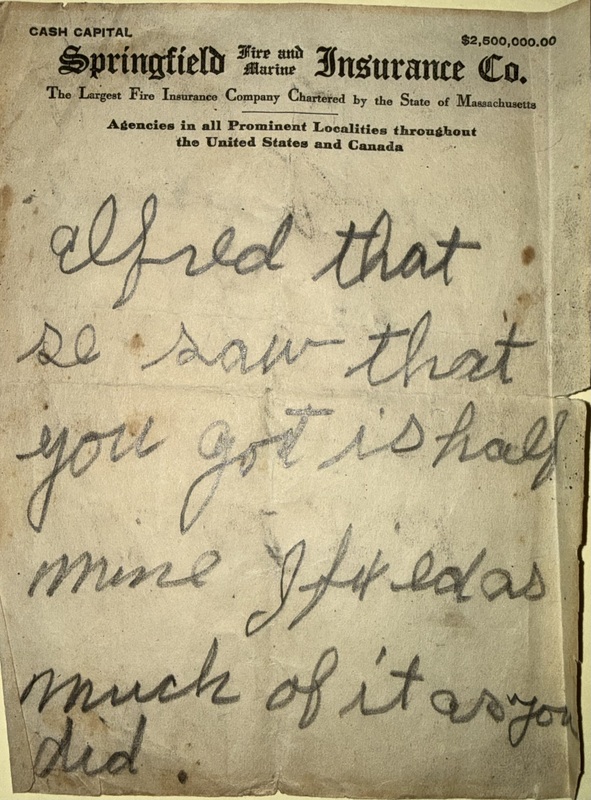 CASH CAPITAL $2,500,000.00
Springfield Fire and Marine Insurance Co.
The Largest Fire Insurance Company Chartered by the State of Massachusetts
Agencies in all Prominent Localities throughout
the United States and Canada
Alfred that
se saw that
you got is half
mine I fixed as
much of it as you
did.